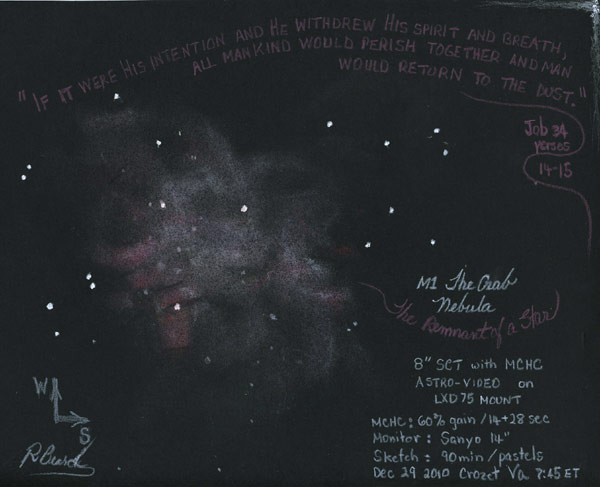 "IF IT WERE HIS INTENTION AND HE WITHDREW HIS SPIRIT AND BREATH,
ALL MANKIND WOULD PERISH TOGETHER AND MAN
WOULD RETURN TO THE DUST."
Job 34
verses
14-15
M1 The Crab
Nebula
The Remnant of a Star
8" SCT with MCHC
ASTRO-VIDEO on
LXD75 MOUNT
MCHC: 60% gain/14+28 sec
Monitor: Sanyo 14"
Sketch: 90min/pastels
Dec 29 2010 Crozet Va 7:45ET
W
S